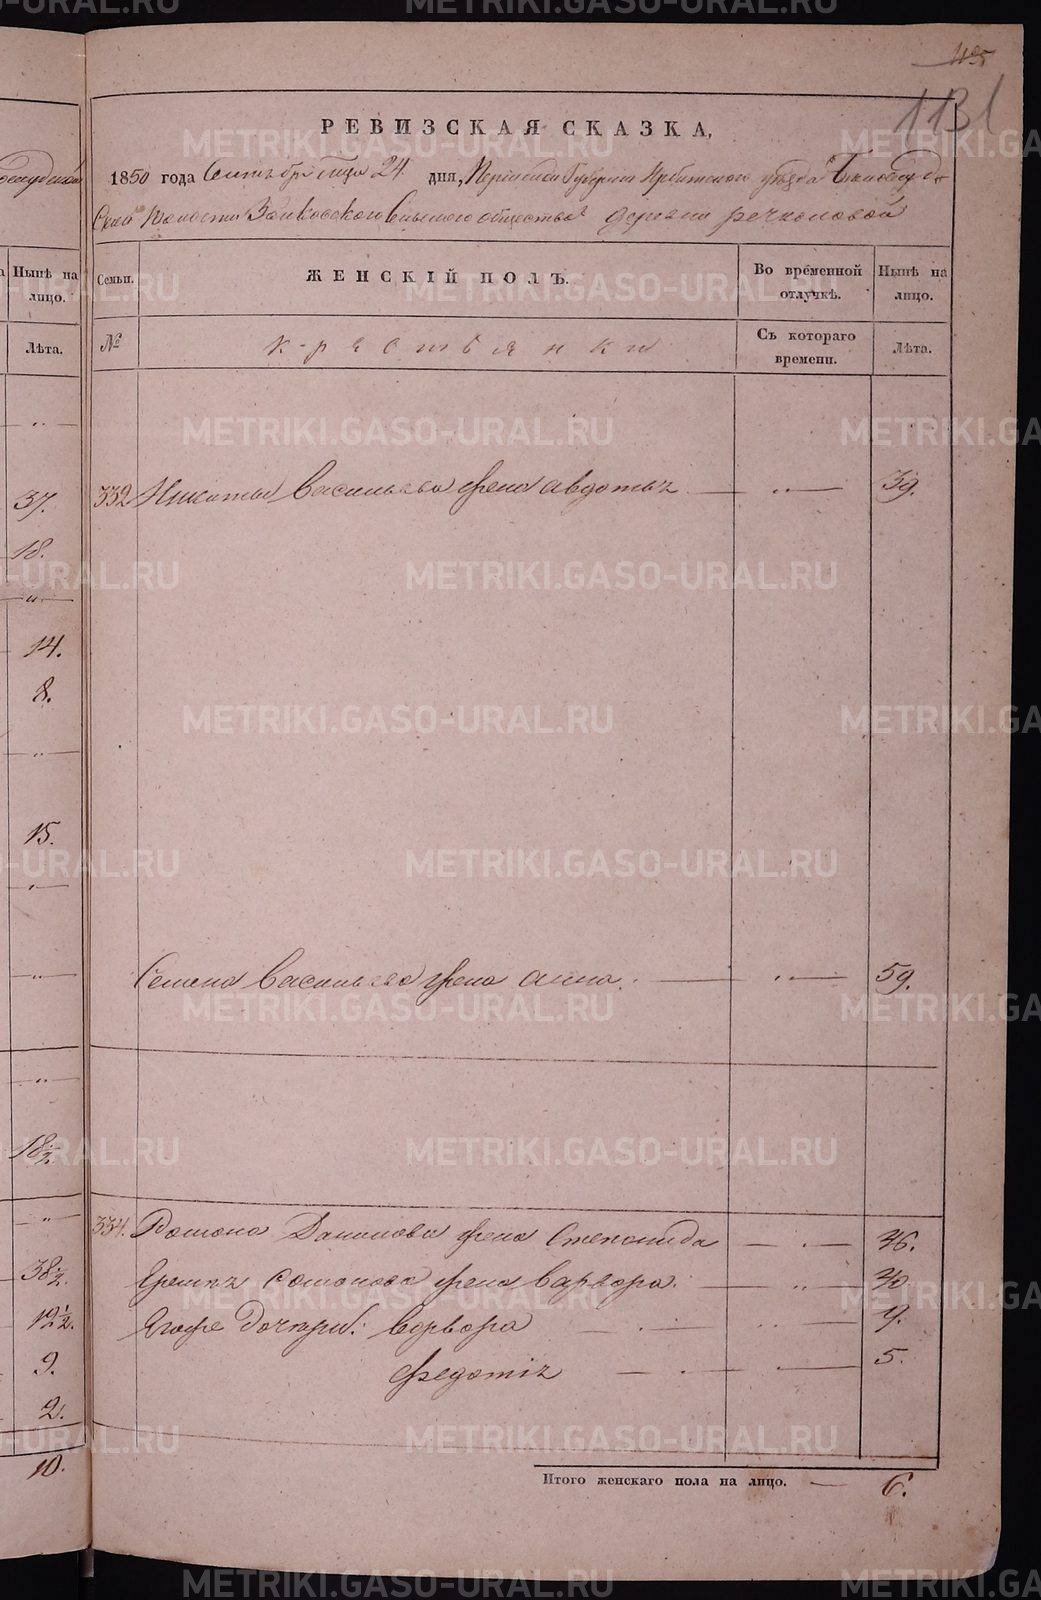 495
1131
РЕВИЗСКАЯ СКАЗКА,
1850 года Сентября 24 дня, Пермской Губернии Ирбитского уезда
Волости Зайковского Сельского общества деревни речкаловой
Нынѣ на лицо.
Семьи.
ЖЕНСКІЙ ПОЛЪ.
Во врéменной отлучкѣ.
Нынѣ на лицо.
Лѣта.
№
крестьянки
Съ котораго времени.
Лѣта.
37.
332 Никиты Васильева жена авдотья 39.
18.
14.
8.
15.
Семена Васильева жена анна. 59.
18½.
334. Романа Данилова жена Степонида 46.
38½.
Романова жена варвора. 40.
19½.
Егоże дочери: ворвора 9.
9.
Федотья 5.
2.
10.
Итого женскаго пола на лицо. — 6.
METRIKI.GASO-URAL.RU